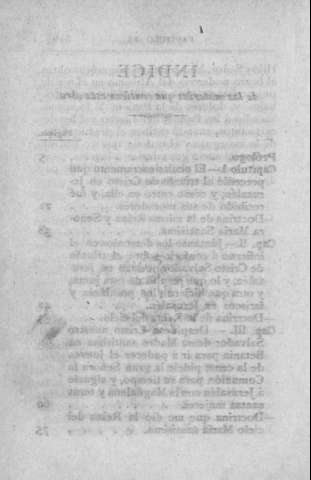 INDICE
de las materias que contiene esta obra
Págs.
Prólogo. 5
Capítulo I.—El oculto sacramento que
precedió al triunfo de Cristo en Je-
rusalén; y como entró en ella, y fué
recibido de sus moradores. .
—Doctrina de la misma Reina y Seño-
ra María Santísima.
Cap. II.—Júntanse los demonios en el
infierno á conferir sobre el triunfo
de Cristo Salvador nuestro en Jeru-
salén; y lo que resultó de esta junta,
y otra que hicieron los pontífices y
fariseos en Jerusalén.
—Doctrina de la Reina del Cielo.
Cap. III.—Despídese Cristo nuestro
Salvador de su Madre santísima en
Betania para ir á padecer el jueves
de la cena; pídele la gran Señora la
Comunión para su tiempo, y síguele
á Jerusalén con la Magdalena y otras
santas mujeres. 60
—Doctrina que me dió la Reina del
cielo María Santísima. 75